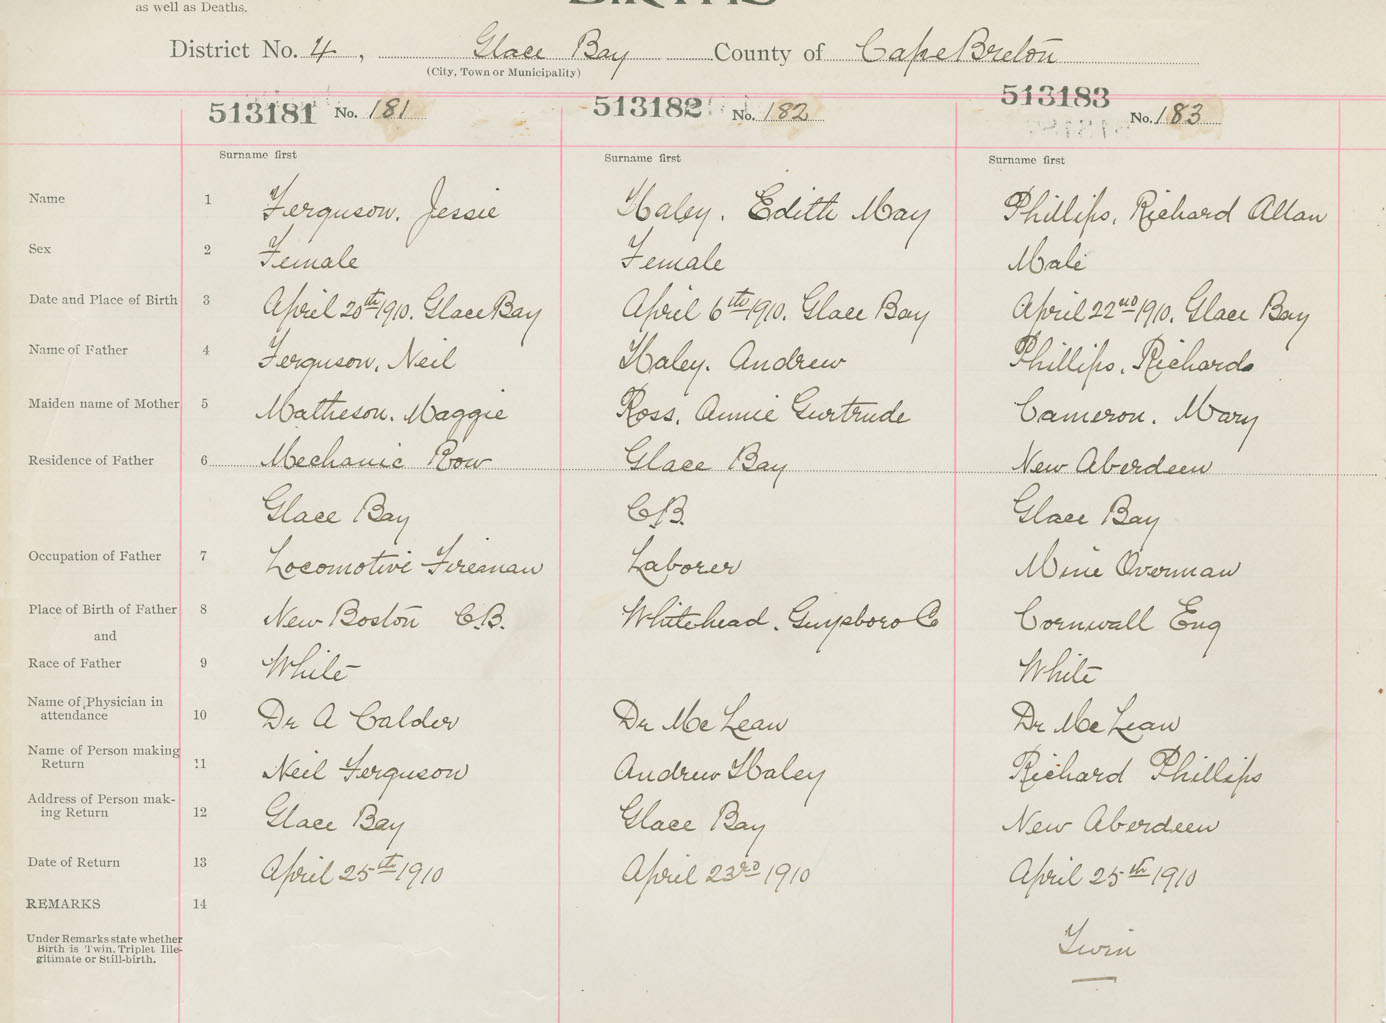 as well as Deaths.
BIRTHS
District No. 4, Glace Bay County of Cape Breton
(City, Town or Municipality)
513181 No. 181 513182 No. 182 513183 No. 183
Surname first Surname first Surname first
Name 1 Ferguson, Jessie Haley, Edith May Phillips, Richard Allan
Sex 2 Female Female Male
Date and Place of Birth 3 April 20th 1910. Glace Bay April 6th 1910. Glace Bay April 22nd 1910. Glace Bay
Name of Father 4 Ferguson, Neil Haley. Andrew Phillips, Richard
Maiden name of Mother 5 Matheson. Maggie Ross, Annie Gurtrude Cameron. Mary
Residence of Father 6 Mechanic Row Glace Bay New Aberdeen
Glace Bay C.B. Glace Bay
Occupation of Father 7 Locomotive Fireman Laborer Mine Overman
Place of Birth of Father 8 New Boston C.B. Whitehead, Guysboro Co Cornwall Eng
and
Race of Father 9 White White
Name of Physician in
attendance 10 Dr A Calder Dr McLean Dr McLean
Name of Person making
Return 11 Neil Ferguson Andrew Haley Richard Phillips
Address of Person mak-
ing Return 12 Glace Bay Glace Bay New Aberdeen
Date of Return 13 April 25th 1910 April 23rd 1910 April 25th 1910
REMARKS 14
Under Remarks state whether
Birth is Twin, Triplet Ille-
gitimate or Still-birth.
Twin